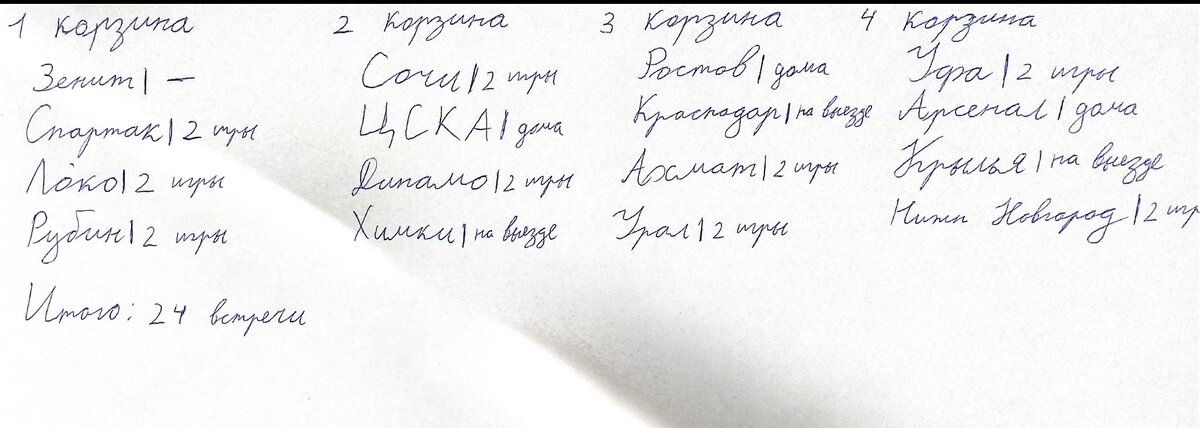 1 корзина
Зенит | —
Спартак | 2 игры
Локо | 2 игры
Рубин | 2 игры
2 корзина
Сочи | 2 игры
ЦСКА | дома
Динамо | 2 игры
Химки | на выезде
3 корзина
Ростов | дома
Краснодар | на выезде
Ахмат | 2 игры
Урал | 2 игры
4 корзина
Уфа | 2 игры
Арсенал | дома
Крылья | на выезде
Нижн Новгород | 2 игр
Итого: 24 встречи